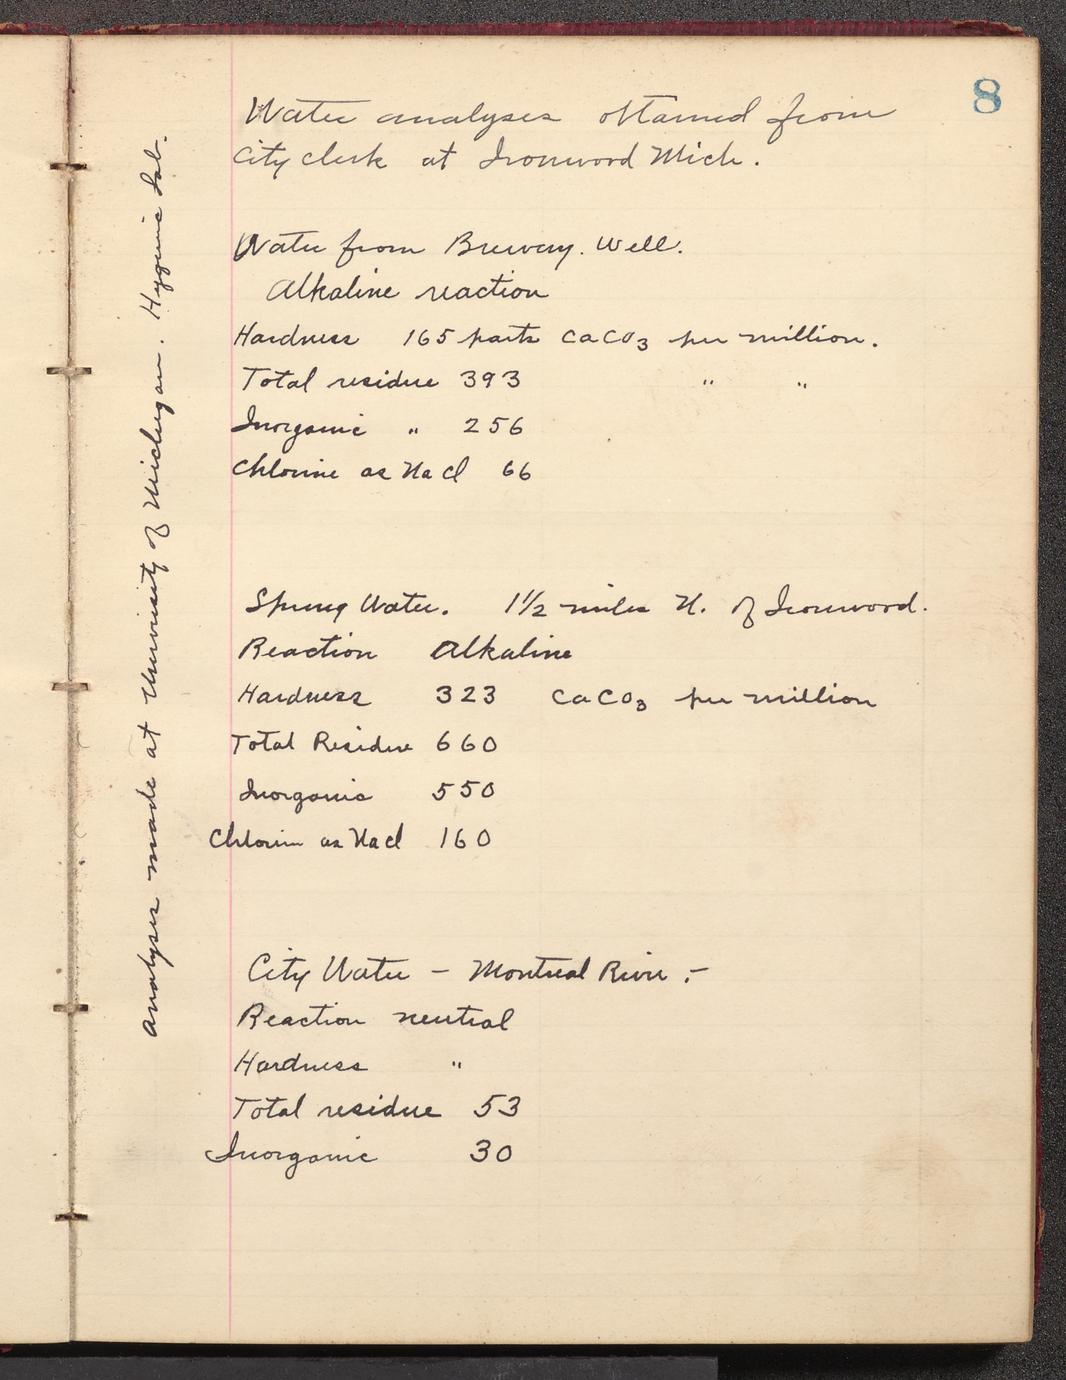 8
Water analyses obtained from
City clerk at Ironwood Mich.
Water from Brewery. Well.
Alkaline reaction
Hardness 165 parts CaCO3 per million.
Total residue 393 " "
Inorganic " 256
Chlorine as NaCl 66
Spring Water. 1½ miles N. of Ironwood.
Reaction Alkaline
Hardness 323 CaCO3 per million
Total Residue 660
Inorganic 550
Chlorin as NaCl 160
City Water - Montreal River :-
Reaction neutral
Hardness "
Total residue 53
Inorganic 30
Analyses made at University of Michigan. Hygienic Lab.